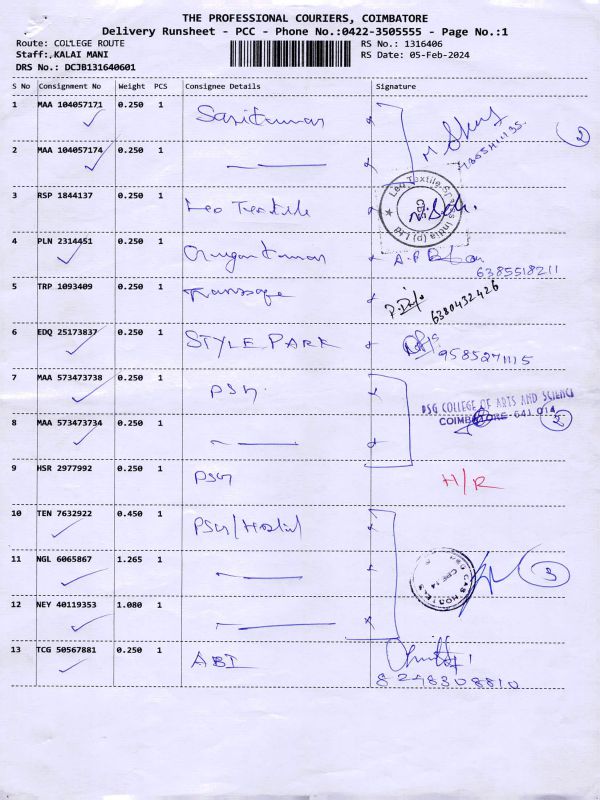 THE PROFESSIONAL COURIERS, COIMBATORE
Delivery Runsheet - PCC - Phone No.:0422-3505555 - Page No.:1
Route: COLLEGE ROUTE RS No.: 1316406
Staff:,KALAI MANI RS Date: 05-Feb-2024
DRS No.: DCJB131640601
S No Consignment No Weight PCS Consignee Details Signature
1 MAA 104057171 0.250 1 Sasikumar
2
2 MAA 104057174 0.250 1
3 RSP 1844137 0.250 1 Leo Textile
Leo Textile India (P) Ltd
4 PLN 2314451 0.250 1
6385518211
5 TRP 1093409 0.250 1
6380432426
6 EDQ 25173837 0.250 1 STYLE PARK
9585271115
7 MAA 573473738 0.250 1 PSG
PSG COLLEGE OF ARTS AND SCIENCE
COIMBATORE 641 014
2
8 MAA 573473734 0.250 1
9 HSR 2977992 0.250 1 PSG H/R
10 TEN 7632922 0.450 1 PSG/Hostel
11 NGL 6065867 1.265 1
3
12 NEY 40119353 1.080 1
13 TCG 50567881 0.250 1 ABI
8248308810